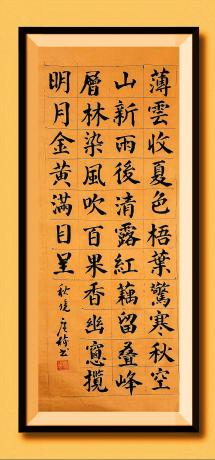 薄雲收夏色梧葉驚寒秋空
山新雨後清露紅藕留叠峰
層林染風吹百果香幽窻攬
明月金黃滿目呈
秋境 唐詩書